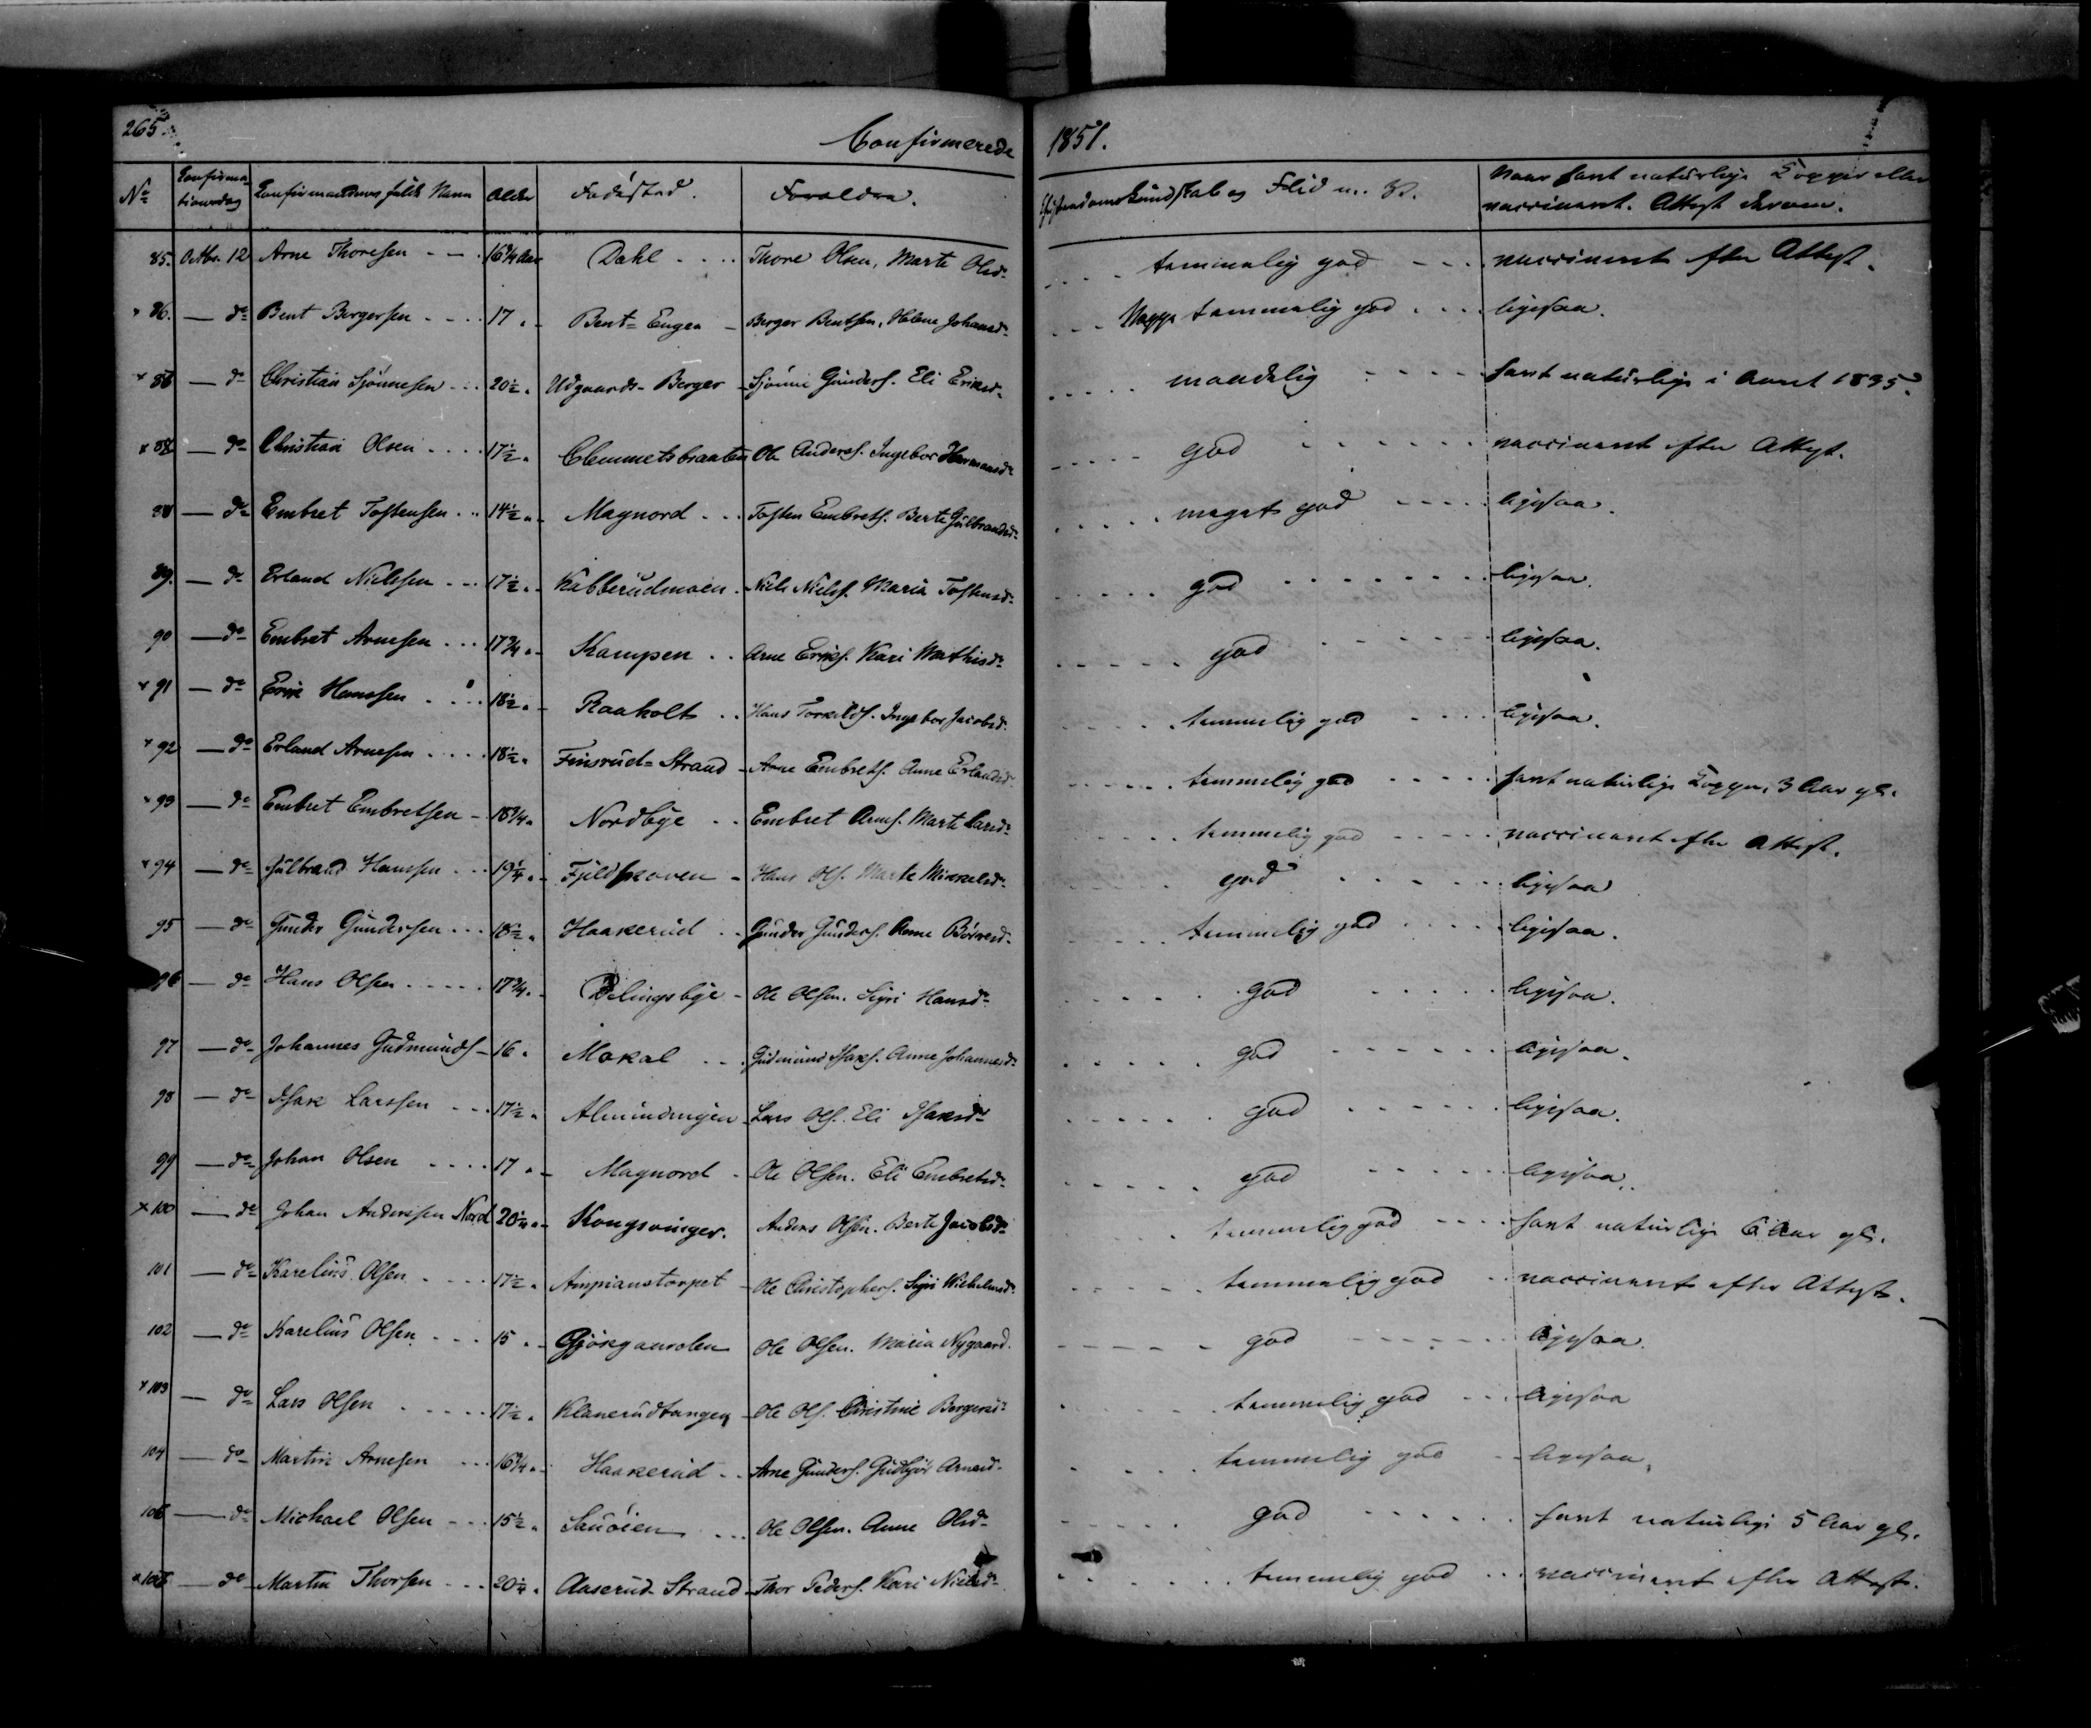 265.
Confirmerede 1851.
No Confirmationsdag Confirmandens fulde Navn Alder Fødested. Forældre. Christendomskundskab og Flid m. V. Naar havt naturlige Kopper eller vaccineret. Attest derom.
85. Octbr. 12 Arne Thoresen 16 3/4 Aar Dahl Thore Olsen, Marte Olsd. temmelig god vaccineret efter Attest.
× 86. — do Bent Bergersen 17 Bent-Engen Berger Bentsen, Helene Johansd. Neppe temmelig god ligesaa.
× 86 — do Christian Sjønnesen 20 1/2 Udgaards-Berger Sjønni Gunders. Eli Eriksd. maadelig havt naturlige i Aaret 1835.
× 88 — do Christian Olsen 17 1/2 Clemmetsbraaten Ole Anders. Ingebor Hermansd. god vaccineret efter Attest.
88 — do Embret Tostensen 14 1/2 Magnord Tosten Embrets. Berte Gulbrandsd. meget god ligesaa.
89. — do Erland Nielssen 17 1/2 Kabberudmoen Niels Niels. Maria Tostensd. god ligesaa.
90 — do Embret Arnesen 17 3/4 Kampen Arne Eriks. Kari Mathisd. god ligesaa.
× 91 — do Erik Hanssen 18 1/2 Raaholt Hans Torkilds. Ingebor Jacobsd. temmelig god ligesaa.
× 92 — do Erland Arnesen 18 1/2 Finsrud-Strand Arne Embrets. Anne Erlandsd. temmelig god havt naturlige Kopper, 3 Aar gl.
× 93 — do Embret Embretsen 18 3/4 Nordbye Embret Arnes. Marte Larsd. temmelig god vaccineret efter Attest.
× 94 — do Gulbrand Hanssen 19 1/4 Fjeldskoven Hans Ols. Marte Mikkelsd. god ligesaa
95 — do Gunder Gundersen 18 1/2 Haakerud Gunder Gunders. Anne Børresd. temmelig god ligesaa.
96 — do Hans Olsen 17 3/4 Delingsbye Ole Olsen. Sigri Hansd. god ligesaa.
97 — do Johannes Gudmunds. 16 Mokal Gudmund Isaks. Anne Johannesd. god ligesaa.
98 — do Isak Larssen 17 1/2 Almindingen Lars Ols. Eli Isaksd. god ligesaa.
99 — do Johan Olsen 17 Magnord Ole Olsen. Eli Embretsd. god ligesaa.
× 100 — do Johan Anderssen Nord 20 1/4 Kongsvinger. Anders Olsen. Berte Jacobsd. temmelig god havt naturlige 6 Aar gl.
101 — do Karelius Olsen 17 1/2 Ampianstorpet Ole Christophers. Sigri Wilhelmsd. temmelig god vaccineret efter Attest.
102 — do Karelius Olsen 15 Gjøsegaarden Ole Olsen. Maria Nygaard. god ligesaa.
× 103 — do Lars Olsen 17 1/2 Klanerudtangen Ole Ols. Christine Bergersd. temmelig god ligesaa
104 — do Martin Arnesen 16 3/4 Haakerud Arne Gunders. Gudbjør Arnesd. temmelig god ligesaa.
106 — do Michael Olsen 15 1/2 Sauøien Ole Olsen. Anne Olsd. god havt naturlige 5 Aar gl.
× 106 — do Martin Thorsen 20 1/4 Aaserud-Strand Thor Peders. Kari Nielsd. temmelig god vaccineret efter Attest.